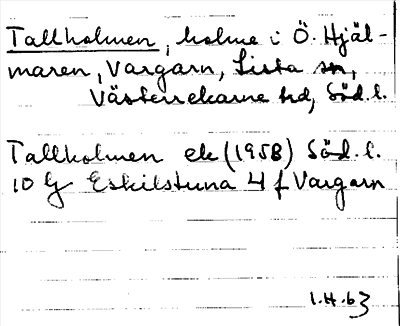 Tallholmen, holme i Ö. Hjäl-
maren, Vargarn, Lista sn,
Västerrekarne hd, Söd. l.
Tallholmen ek (1958) Söd. l.
10 G Eskilstuna 4 f Vargarn
1.H.63